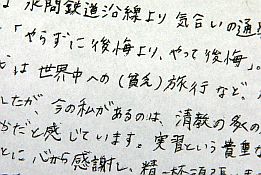 水間鉄道沿線より 気合いの通
「やらずに後悔より、やって後悔」。
は 世界中への(貧乏)旅行など、
したが、今の私があるのは、清教の多くの
だと感じています。実習という貴重な
とに心から感謝し、精一杯頑張りま